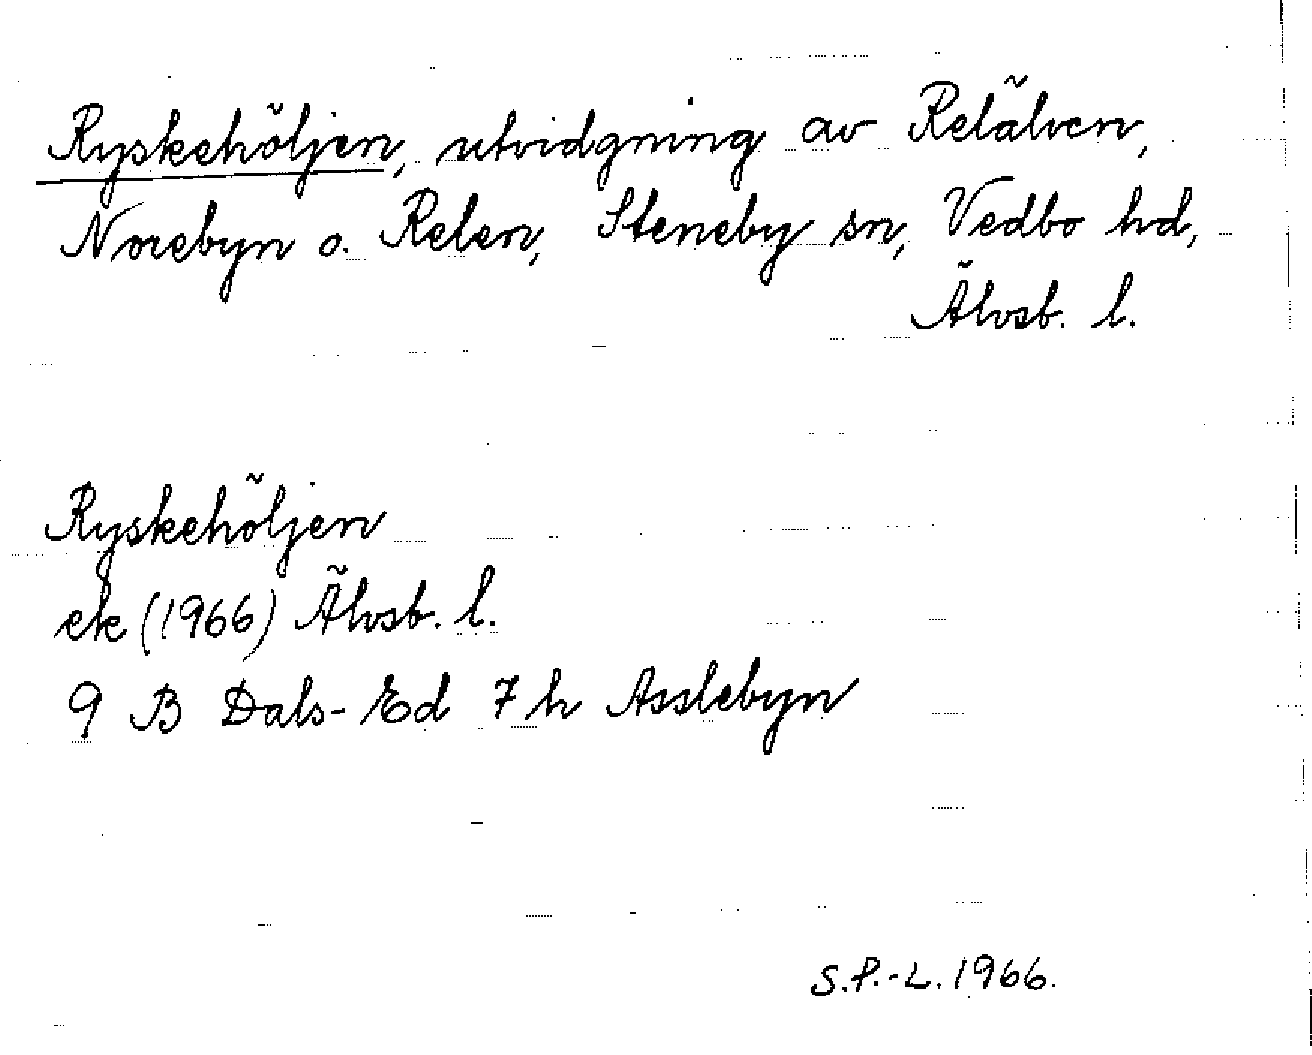 Ryskehöljen, utvidgning av Relälven,
Norebyn o. Relen, Steneby sn, Vedbo hd,
Älvsb. l.
Ryskehöljen
ek (1966) Älvsb. l.
9 B Dals-Ed 7 h Asslebyn
S.P.-L. 1966.